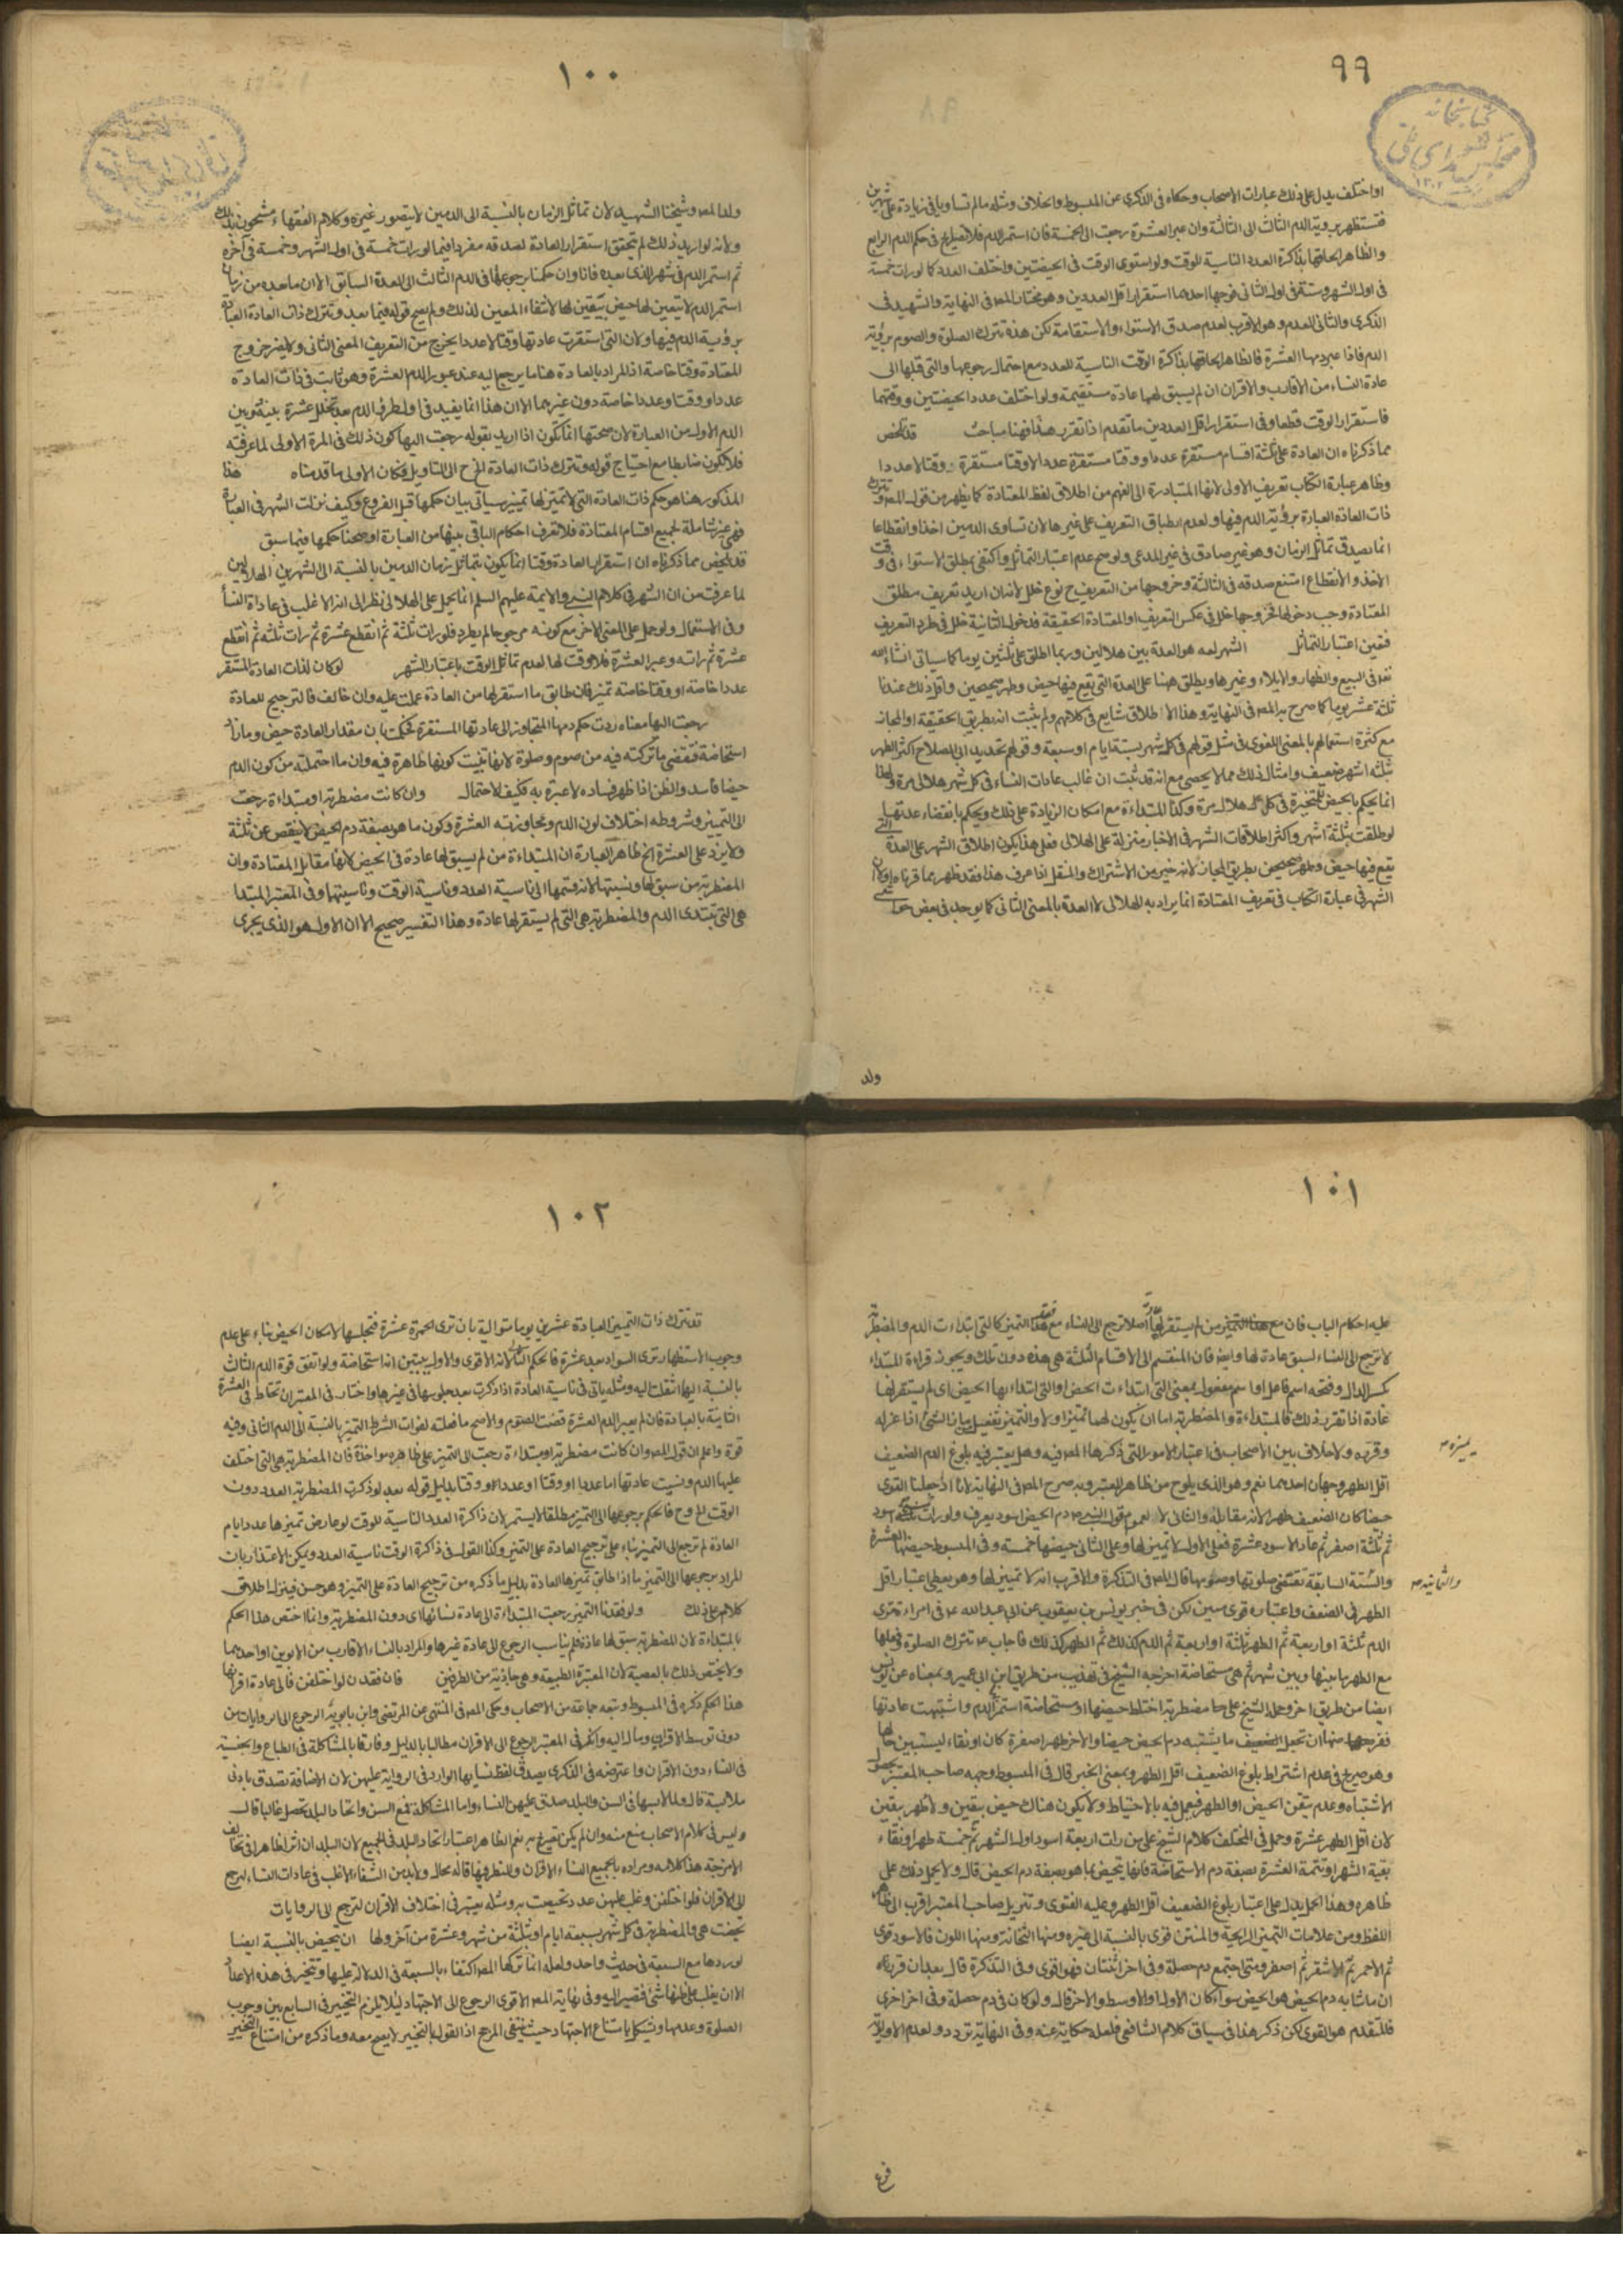 ٩٩
كتابخانه مجلس شورای ملی
او اختلف يدل على ذلك عبارات الاصحاب وحكاه فى الذكرى عن المبسوط والخلاف ومثله ما لم تساويا فى زيادة على شهرين
فتستظهر برؤية الدم الثالث الى الثالثة وان عبر العشرة رجعت الى الخمسة فان استمر الدم فى حكم الدم الرابع
والظاهر الحاقها بذاكرة العدد الناسية للوقت ولو استوى الوقت فى الحيضتين واختلف العدد كما لو رات خمسة
فى اول الشهر وستة فى اول الثانى فوجهان احدهما استقرار اقل العددين وهو مختار المص فى النهاية والشهيد فى
الذكرى والثانى العدم وهو الاقرب لعدم صدق الاستواء والاستقامة لكن هذه تترك الصلوة والصوم برؤية
الدم فاذا عبر دمها العشرة فالظاهر الحاقها بذاكرة الوقت الناسية للعدد مع احتمال رجوعها والتى قبلها الى
عادة النساء من الاقارب والاقران ان لم يسبق لهما عادة مستقيمة ولو اختلف عدد الحيضتين ووقتهما
فاستقرار الوقت قطعا وفى استقرار اقل العددين ما تقدم اذا تقرر هذا فهنا مباحث قد تلخص
مما ذكرناه ان العادة على ثلثة اقسام مستقرة عددا ووقتا مستقرة عددا لا وقتا مستقرة وقتا لا عددا
وظاهر عبارة الكتاب تعريف الاولى لانها المتبادرة الى الفهم من اطلاق لفظ المعتادة كما يظهر من قول المص وتترك
ذات العادة العبادة برؤية الدم فيها ولعدم انطباق التعريف على غيرها لان تساوى الدمين اخذا وانقطاعا
انما يصدق تماثل الزمان وهو غير صادق فى غير المدعى ولو صح عدم اعتبار التماثل واكتفى بمطلق الاستواء فى وقت
الاخذ والانقطاع امتنع صدقه فى الثالثة وخروجها من التعريف ح نوع خلل لانه ان اريد تعريف مطلق
المعتادة وجب دخولها فخروجها خل فى عكس التعريف او المعتادة الحقيقة فدخول الثانية خلل فى طرد التعريف
فتعين اعتبار التماثل الشهر لعه هو العدة بين هلالين وربما اطلق على ثلثين يوما كما سياتى انشاء الله
تعه فى البيع والظهار والايلاء وغيرها ويطلق هنا على العدة التى تقع فيها حيض وطهر صحيحين واقل ذلك عندنا
ثلثة عشر يوما كما صرح به المص فى النهاية وهذا الاطلاق شايع فى كلامهم ولم يثبت انه بطريق الحقيقة او المجاز
مع كثرة استعمالهم بالمعنى اللغوى فى مثل قولهم فى كل شهر بستة ايام او سبعة وقولهم تحديد ابى الصلاح اكثر الطهر
بثلثة اشهر ضعيف وامثال ذلك مما لا يحصى مع انه قد ثبت ان غالب عادات النساء فى كل شهر هلالى مرة ولهذا
انما يحكم بالحيض للمتحيرة فى كل هلال مرة وكذا المبتداءة مع امكان الزيادة على ذلك ويحكم بانقضاء عدتها
لو طلقت بثلثة اشهر واكثر اطلاقات الشهر فى الاخبار منزلة على الهلالى فعلى هذا يكون اطلاق الشهر على العدة التى
تقع فيها حيض وطهر صحيحين بطريق المجاز لانه خير من الاشتراك والنقل اذا عرف هذا فقد ظهر بما قررناه اولا ان
الشهر فى عبارة الكتاب فى تعريف المعتادة انما يراد به الهلالى لا العدة بالمعنى الثانى كما يوجد فى بعض حواشى
ولد
١٠٠
ولد المص وشيخنا الشهيد لان تماثل الزمان بالنسبة الى الدمين لا يتصور غيره وكلام الفقهاء مشحون بذلك
ولانه لو اريد ذلك لم يتحقق استقرار العادة لصدقه مفردا فيما لو رات خمسة فى اول الشهر وخمسة فى آخره
ثم استمر الدم فى شهر الذى بعده فانا وان حكمنا برجوعها فى الدم الثالث الى العدة السابق الا ان ما بعده من زمان
استمرار الدم لا يتعين لها حيض بيقين لها لانتفاء المعين لذلك ولم يصح قوله فيما بعد وتترك ذات العادة العبادة
برؤية الدم فيها ولان التى استقرت عادتها وقتا لا عددا يخرج من التعريف المعنى الثانى ولا يضر خروج
المعتادة وقتا خاصة اذ المراد بالعادة هنا ما يرجع اليه عند عبور الدم العشرة وهو ثابت فى ذات العادة
عددا ووقتا وعددا خاصة دون غيرهما الا ان هذا انما يفيد فى اول طرو الدم بعد تخلل عشرة بينه وبين
الدم الاول من العبارة لان صحتها انما تكون اذا اريد بقوله رجعت اليها كون ذلك فى المرة الاولى لما عرفته
فلا تكون ضابطا مع احتياج قوله وتترك ذات العادة الخ الى التاويل فكان الاولى ما قدمناه هذا
المذكور هنا هو حكم ذات العادة التى لا تمييز لها تمييز سياتى بيان حكمها قبل الفروع وكيف نزلت الشهر فى العبارة
فهى غير شاملة لجميع اقسام المعتادة فلا تعرف احكام الباقى بينها من العبارة اوضحنا حكمها فيما سبق
قد تلخص مما ذكرناه ان استقرار العادة وقتا انما يكون بتماثل زمان الدمين بالنسبة الى الشهرين الهلاليين
لما عرفت من ان الشهر فى كلام النبى والايمة عليهم السلم انما يحمل على الهلالى نظرا الى انه الاغلب فى عادات النساء
وفى الاستعمال ولو حمل على المعنى الاخر مع كونه مرجوحا لم يطرد فلو رات ثلثة ثم انقطع عشرة ثم رات ثلثة ثم انقطع
عشرة ثم راته وعبر العشرة فلا وقت لها لعدم تماثل الوقت باعتبار الشهر لو كان لذات العادة المستقر
عددا خاصة او وقتا خاصة تمييز فان طابق ما استقر لها من العادة عملت عليه وان خالف فالترجيح للعادة
رجعت اليها معناه ردت حكم دمها المتجاوز الى عادتها المستقرة فحكمت بان مقدار العادة حيض وما زاد
استحاضة فتقضى ما تركته فيه من صوم وصلوة لانها تبينت كونها طاهرة فيه وان ما احتملته من كون الدم
حيضا فاسد والظن اذا ظهر فساده لا عبرة به فكيف الاحتمال وان كانت مضطربة او مبتداءة رجعت
الى التمييز وشروطه اختلاف لون الدم وتجاوزته العشرة وكون ما هو بصفة دم الحيض لا ينقص عن ثلثة
ولا يزد على العشرة الخ ظاهر العبارة ان المبتداءة من لم يسبق لها عادة فى الحيض لانها مقابل المعتادة وان
المضطربة من سبق لها ونسيتها لانه قسمها الى ناسية العدد وناسية الوقت وناسيتهما وفى المعتبر المبتداءة
هى التى تبتدى الدم والمضطربة هى التى لم يستقر لها عادة وهذا التفسير صحيح الا ان الاول هو الذى يجرى
١٠١
عليه احكام الباب فان مع هذا التمييز من لم يستقر لها عادة اصلا ترجع الى النساء مع فقد التمييز كالتى ابتداءت الدم والمضطربة
لا ترجع الى النساء لسبق عادة لها وايضا فان المنقسم الى الاقسام الثلثة هى هذه دون تلك ويجوز قراءة المبتداءة
بكسر الدال وفتحه اسم فاعل او اسم مفعول بمعنى التى ابتداءت الحيض او التى ابتداء بها الحيض اى لم يستقر لها
عادة اذا تقرر ذلك فالمبتداءة والمضطربة اما ان يكون لهما تمييز او لا والتمييز تفعيل من ماز الشئ اذا عزله
وفرزه ولا خلاف بين الاصحاب فى اعتبار الامور التى ذكرها المص فيه وهل يعتبر فيه بلوغ الدم الضعيف
اقل الطهر وجهان احدهما نعم وهو الذى يلوح من ظاهر المعتبر وبه صرح المص فى النهاية لانا اذا جعلنا القوى
حيضا كان الضعيف طهرا لانه مقابله والثانى لا لعموم قول النبى ص دم الحيض اسود يعرف ولو رات ثلثة اسود
ثم ثلثة اصفر ثم عاد الاسود عشرة فعلى الاول لا تمييز لها وعلى الثانى حيضها خمسة وفى المبسوط حيضها العشرة
والستة السابقة تقتضى صلوتها وصومها قال المص فى التذكرة والاقرب انه لا تمييز لها وهو يعطى اعتبار اقل
الطهر فى الضعف واعتباره قوى متين لكن فى خبر يونس بن يعقوب عن ابى عبد الله ع فى امراة ترى
الدم ثلثة او اربعة ثم الطهر ثلثة او اربعة ثم الدم كذلك ثم الطهر كذلك فاجاب ع تترك الصلوة وفعلها
مع الطهر ما بينها وبين شهر ثم هى مستحاضة اخرجه الشيخ فى تهذيب من طريق ابن ابى عمير وبمعناه عن يونس
ايضا من طريق اخر وحمله الشيخ على مضطربة اختلط حيضها او مستحاضة استمر الدم واشتبهت عادتها
ففرضها ان تجعل الضعيف ما يشتبه دم الحيض حيضا والاخر طهرا صفرة كان او نقاء ليستبين حالها
وهو صريح فى عدم اشتراط بلوغ الضعيف اقل الطهر وبمعنى الخبر قال فى المبسوط وجهه صاحب المعتبر بحصول
الاشتباه وعدم تيقن الحيض او الطهر فيعمل فيه بالاحتياط ولا يكون هناك حيض بيقين ولا طهر بيقين
لان اقل الطهر عشرة وحمل فى المختلف كلام الشيخ على من رات اربعة اسود اول الشهر ثم خمسة طهرا ونقاء
بقية الشهر او تتمة العشرة بصفة دم الاستحاضة فانها تحيض بما هو بصفة دم الحيض قال ولا يحمل ذلك على
ظاهره وهذا الحمل يدل على اعتبار بلوغ الضعيف اقل الطهر وعليه الفتوى وتنزيل صاحب المعتبر اقرب الى ظاهر
اللفظ ومن علامات التمييز الرايحة والمنتن قوى بالنسبة الى غيره ومنها الثخانة ومنها اللون فالاسود قوى
ثم الاحمر ثم الاشقر ثم اصفر ومتى اجتمع دم خصلة وفى اخر اثنتان فهو اقوى وفى التذكرة قال بعد ان قرر
ان ما شابه دم الحيض هو الحيض سواء كان الاول او الاوسط او الاخر قال ولو كان فى دم خصلة وفى اخر اخرى
فالمتقدم هو القوى لكن ذكر هذا فى سياق كلام الشافعى فلعله حكاية عنه وفى النهاية تردد ولعدم الاولوية
والثمانية
فرع
١٠٢
قد تترك ذات التمييز العبادة عشرين يوما متوالية بان ترى الحمرة عشرة فتجلسها لامكان الحيض بناء على عدم
وجوب الاستظهار ثم ترى السواد بعد عشرة فالحكم للثانى لانه الاقوى والاول يتبين انه استحاضة ولو اتفق قوة الدم الثالث
بالنسبة اليها انتقلت اليه ومثله ياتى فى ناسية العادة اذا ذكرت بعد جلوسها فى غيرها واختار فى المعتبر ان تحتاط فى العشرة
الثانية بالعبادة فان لم يعبر الدم العشرة قضت الصوم والاصح ما فعلته لفوات الشرط التمييز بالنسبة الى الدم الثانى وفيه
قوة واعلم ان قول المص وان كانت مضطربة او مبتداءة رجعت الى التمييز على ظاهره مواخذة فان المضطربة هى التى اختلف
عليها الدم ونسيت عادتها اما عددا او وقتا او عددا ووقتا بدليل قوله بعد لو ذكرت المضطربة العدد دون
الوقت الخ وح فالحكم برجوعها الى التمييز مطلقا لا يستمر لان ذاكرة العدد الناسية للوقت لو عارض تمييزها عدد ايام
العادة لم ترجع الى التمييز بناء على ترجيح العادة على التمييز وكذا القول فى ذاكرة الوقت ناسية العدد ويمكن الاعتذار بان
المراد برجوعها الى التمييز ما اذا طابق تمييزها العادة بدليل ما ذكره من ترجيح العادة على التمييز وهو حسن فينزل اطلاق
كلامه على ذلك ولو فقدنا التمييز رجعت المبتداءة الى عادة نسائها اى دون المضطربة وانما اختص هذا الحكم
بالمبتداءة لان المضطربة سبق لها عادة فلم يناسب الرجوع الى عادة غيرها والمراد بالنساء الاقارب من الابوين او احدهما
ولا يختص ذلك بالعصبة لان المعتبر الطبيعة وهى جاذبة من الطرفين فان فقدن لو اختلفن فالى عادة اقرانها
هذا الحكم ذكره فى المبسوط وتبعه جماعة من الاصحاب وحكى المص فى المنتهى عن المرتضى وابن بابويه الرجوع الى الروايات من
دون توسط الاقران ومال اليه وانكر فى المعتبر الرجوع الى الاقران مطالبا بالدليل وفارقا بالمشاكلة فى الطباع والجنسية
فى النساء دون الاقران واعترضه فى الذكرى بصدق لفظ نسائها الوارد فى الرواية عليهن لان الاضافة تصدق بادنى
ملابسة قال ولما لابسها فى السن والبلد صدق عليهن النساء واما المشاكلة فمع السن واتحاد البلد تحصل غالبا قال
وليس فى كلام الاصحاب منع منه وان لم يكن تصريح به نعم الظاهر اعتبار اتحاد البلد فى الجميع لان البلدان اثرا ظاهرا فى تخالف
الامزجة هذا كلامه ومراده بالجميع النساء والاقران والنظر فيما قاله بحاله ولا بد من التنبيه للاغلب فى عادات النساء لترجع
الى الاقران فلو اختلفن وغلب عليهن عدد تحيضت به ومثله يعتبر فى اختلاف الاقران لترجع الى الروايات
تحيضت هى والمضطربة فى كل شهر بسبعة ايام او بثلثة من شهر وعشرة من آخر ولها ان تحيض بالنسبة ايضا
لورودها مع السبعة فى حديث واحد ولعله انما تركها المص اكتفاء بالسبعة فى الدلالة عليها وتتخير فى هذه الاعداد
الا ان يغلب على ظنها شئ فتصير اليه وفى نهاية المص الاقوى الرجوع الى الاجتهاد لئلا يلزم التخيير فى السابع بين وجوب
الصلوة وعدمها ويشكل بامتناع الاجتهاد حيث ينتفى المرجح اذ القول بالتخيير لا يصح معه وما ذكره من امتناع التخيير